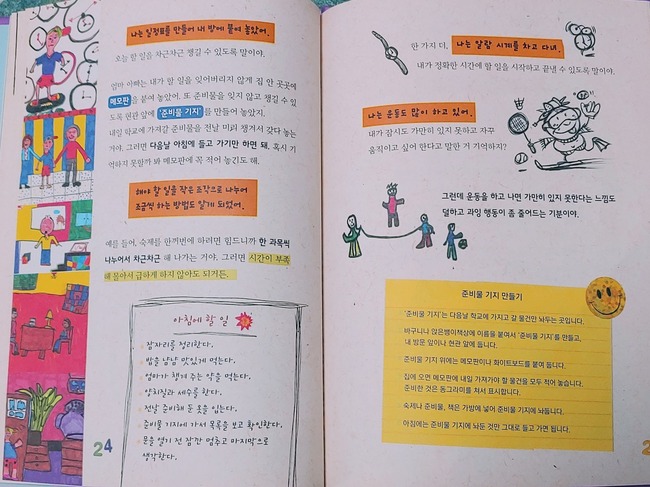 나는 일정표를 만들어 내 방에 붙여 놓았어.
오늘 할 일을 차근차근 챙길 수 있도록 말이야.
엄마 아빠는 내가 할 일을 잊어버리지 않게 집 안 곳곳에
메모판을 붙여 놓았어. 또 준비물을 잊지 않고 챙길 수 있
도록 현관 앞에 '준비물 기지'를 만들어 놓았지.
내일 학교에 가져갈 준비물을 전날 미리 챙겨서 갖다 놓는
거야. 그러면 다음날 아침에 들고 가기만 하면 돼. 혹시 기
억하지 못할까 봐 메모판에 꼭 적어 놓긴도 해.
해야 할 일을 작은 조각으로 나누어
조금씩 하는 방법도 알게 되었어.
예를 들어, 숙제를 한꺼번에 하려면 힘드니까 한 과목씩
나누어서 차근차근 해 나가는 거야. 그러면 시간이 부족
해 몰아서 급하게 하지 않아도 되거든.
아침에 할 일
잠자리를 정리한다.
밥을 냠냠 맛있게 먹는다.
엄마가 챙겨 주는 약을 먹는다.
양치질과 세수를 한다.
전날 준비해 둔 옷을 입는다.
준비물 기지에 가서 목록을 보고 확인한다.
문을 열기 전 잠깐 멈추고 마지막으로
생각한다.
24
한 가지 더, 나는 알람 시계를 차고 다녀.
내가 정확한 시간에 할 일을 시작하고 끝낼 수 있도록 말이야.
나는 운동도 많이 하고 있어.
내가 잠시도 가만히 있지 못하고 자꾸
움직이고 싶어 한다고 말한 거 기억하지?
그런데 운동을 하고 나면 가만히 있지 못한다는 느낌도
덜하고 과잉 행동이 좀 줄어드는 기분이야.
준비물 기지 만들기
'준비물 기지'는 다음날 학교에 가지고 갈 물건만 놔두는 곳입니다.
바구니나 앉은뱅이책상에 이름을 붙여서 '준비물 기지'를 만들고,
내 방문 앞이나 현관 앞에 둡니다.
준비물 기지 위에는 메모판이나 화이트보드를 붙여 둡니다.
집에 오면 메모판에 내일 가져가야 할 물건을 모두 적어 놓습니다.
준비한 것은 동그라미를 쳐서 표시합니다.
숙제나 준비물, 책은 가방에 넣어 준비물 기지에 놔둡니다.
아침에는 준비물 기지에 놔둔 것만 그대로 들고 가면 됩니다.
2